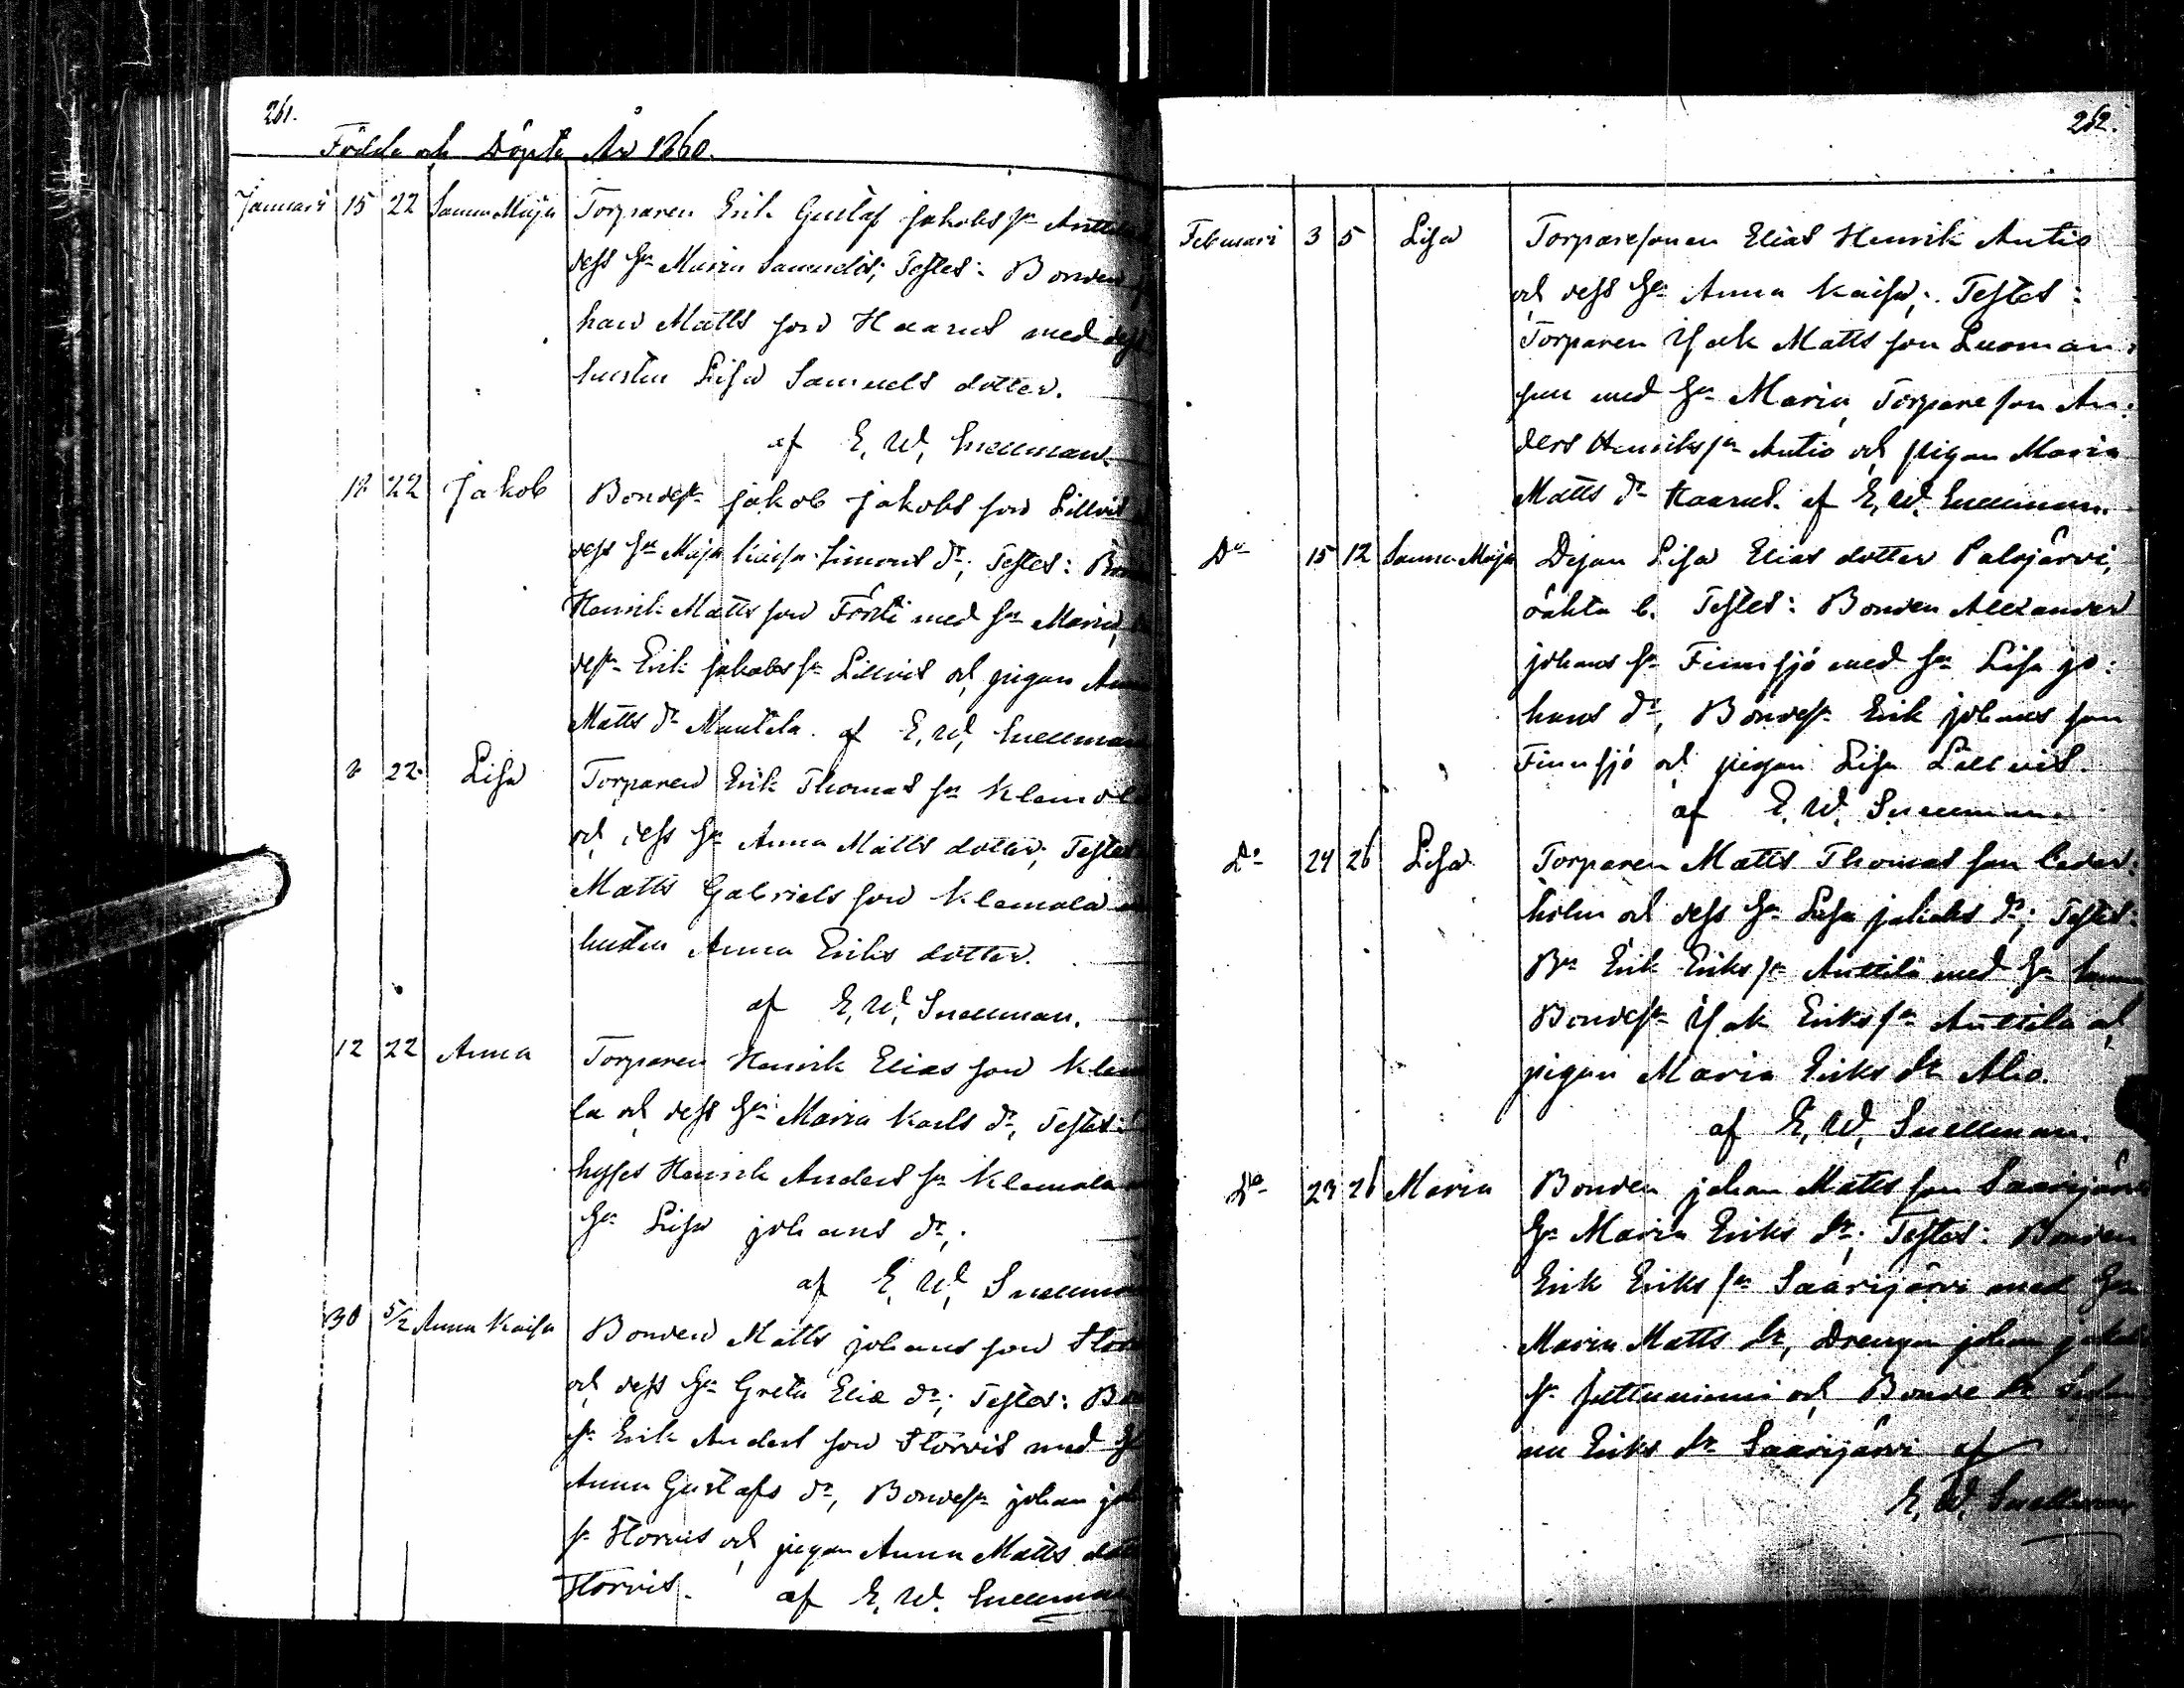 261.
Födde och Döpte År 1860.
Januari 15 22 Sanna Maija Torparen Erik Gustaf Jakobs sn
dess Hu Maria Samuelsdr; Testes: Bonden
han Matts son Haarus med dess
hustru Lisa Samuels dotter.
af E. W. Snellman
18 22 Jakob Bondesn Jakob Jakobs son Lillvis
dess Hu Maja Kaisa Simons dr; Testes:
Henrik Matts son Förti med Hu Maria,
desn Erik Jakobs sn Lillvis och pigan
Matts dr Mantela. af E. W. Snellman
8 22 Lisa Torparen Erik Thomas sn
och dess Hu Anna Matts dotter; Testes
Matts Gabriels son Klemola
hustru Anna Eriks dotter.
af E. W. Snellman.
12 22 Anna Torparen Henrik Elias son
la och dess Hu Maria Karls dr, Testes:
Henrik Anders sn Klemola
Hu Lisa Johans dr,
af E. W. Snellman
30 5/2 Anna Kaisa Bonden Matts Johans son
och dess Hu Greta Elia dr; Testes:
sn Erik Anders son Storvis med
Anna Gustafs dr, Bondesn Johan
sn Storvis och pigan Anna Matts
Storvis. af E. W. Snellman
262.
Februari 3 5 Lisa Torparesonen Elias Henrik Antio
och dess Hu Anna Kaisa; Testes:
Torparen Isak Matts son Luoman:
son med Hu Maria, Torpareson An:
ders Henriks sn Antio och pigan Maria
Matts dr Haarus. af E. W. Snellman.
Do 15 12 Sanna Maja Dejan Lisa Elias dotter Palojärvi,
oäkta b. Testes: Bonden Alexander
Johans sn Finnsjö med Hu Lisa Jo:
hans dr, Bondesn Erik Johans son
Finnsjö och pigan Lisa Lillvis.
af E. W. Snellman.
Do 24 26 Lisa Torparen Matts Thomas son Ceder:
holm och dess Hu Lisa Jakobs dr; Testes:
Bn Erik Eriks sn Anttila med Hu
Bondesn Isak Eriks sn Anttila och
pigan Maria Eriks dr Aho.
af E. W. Snellman.
Do 23 26 Maria Bonden Johan Matts son Saarijärvi
Hu Maria Eriks dr; Testes: Bonden
Erik Eriks sn Saarijärvi med Hu
Maria Matts dr, Drengen Johan
sn och Bonde dr
na Eriks dr Saarijärvi af
E. W. Snellman